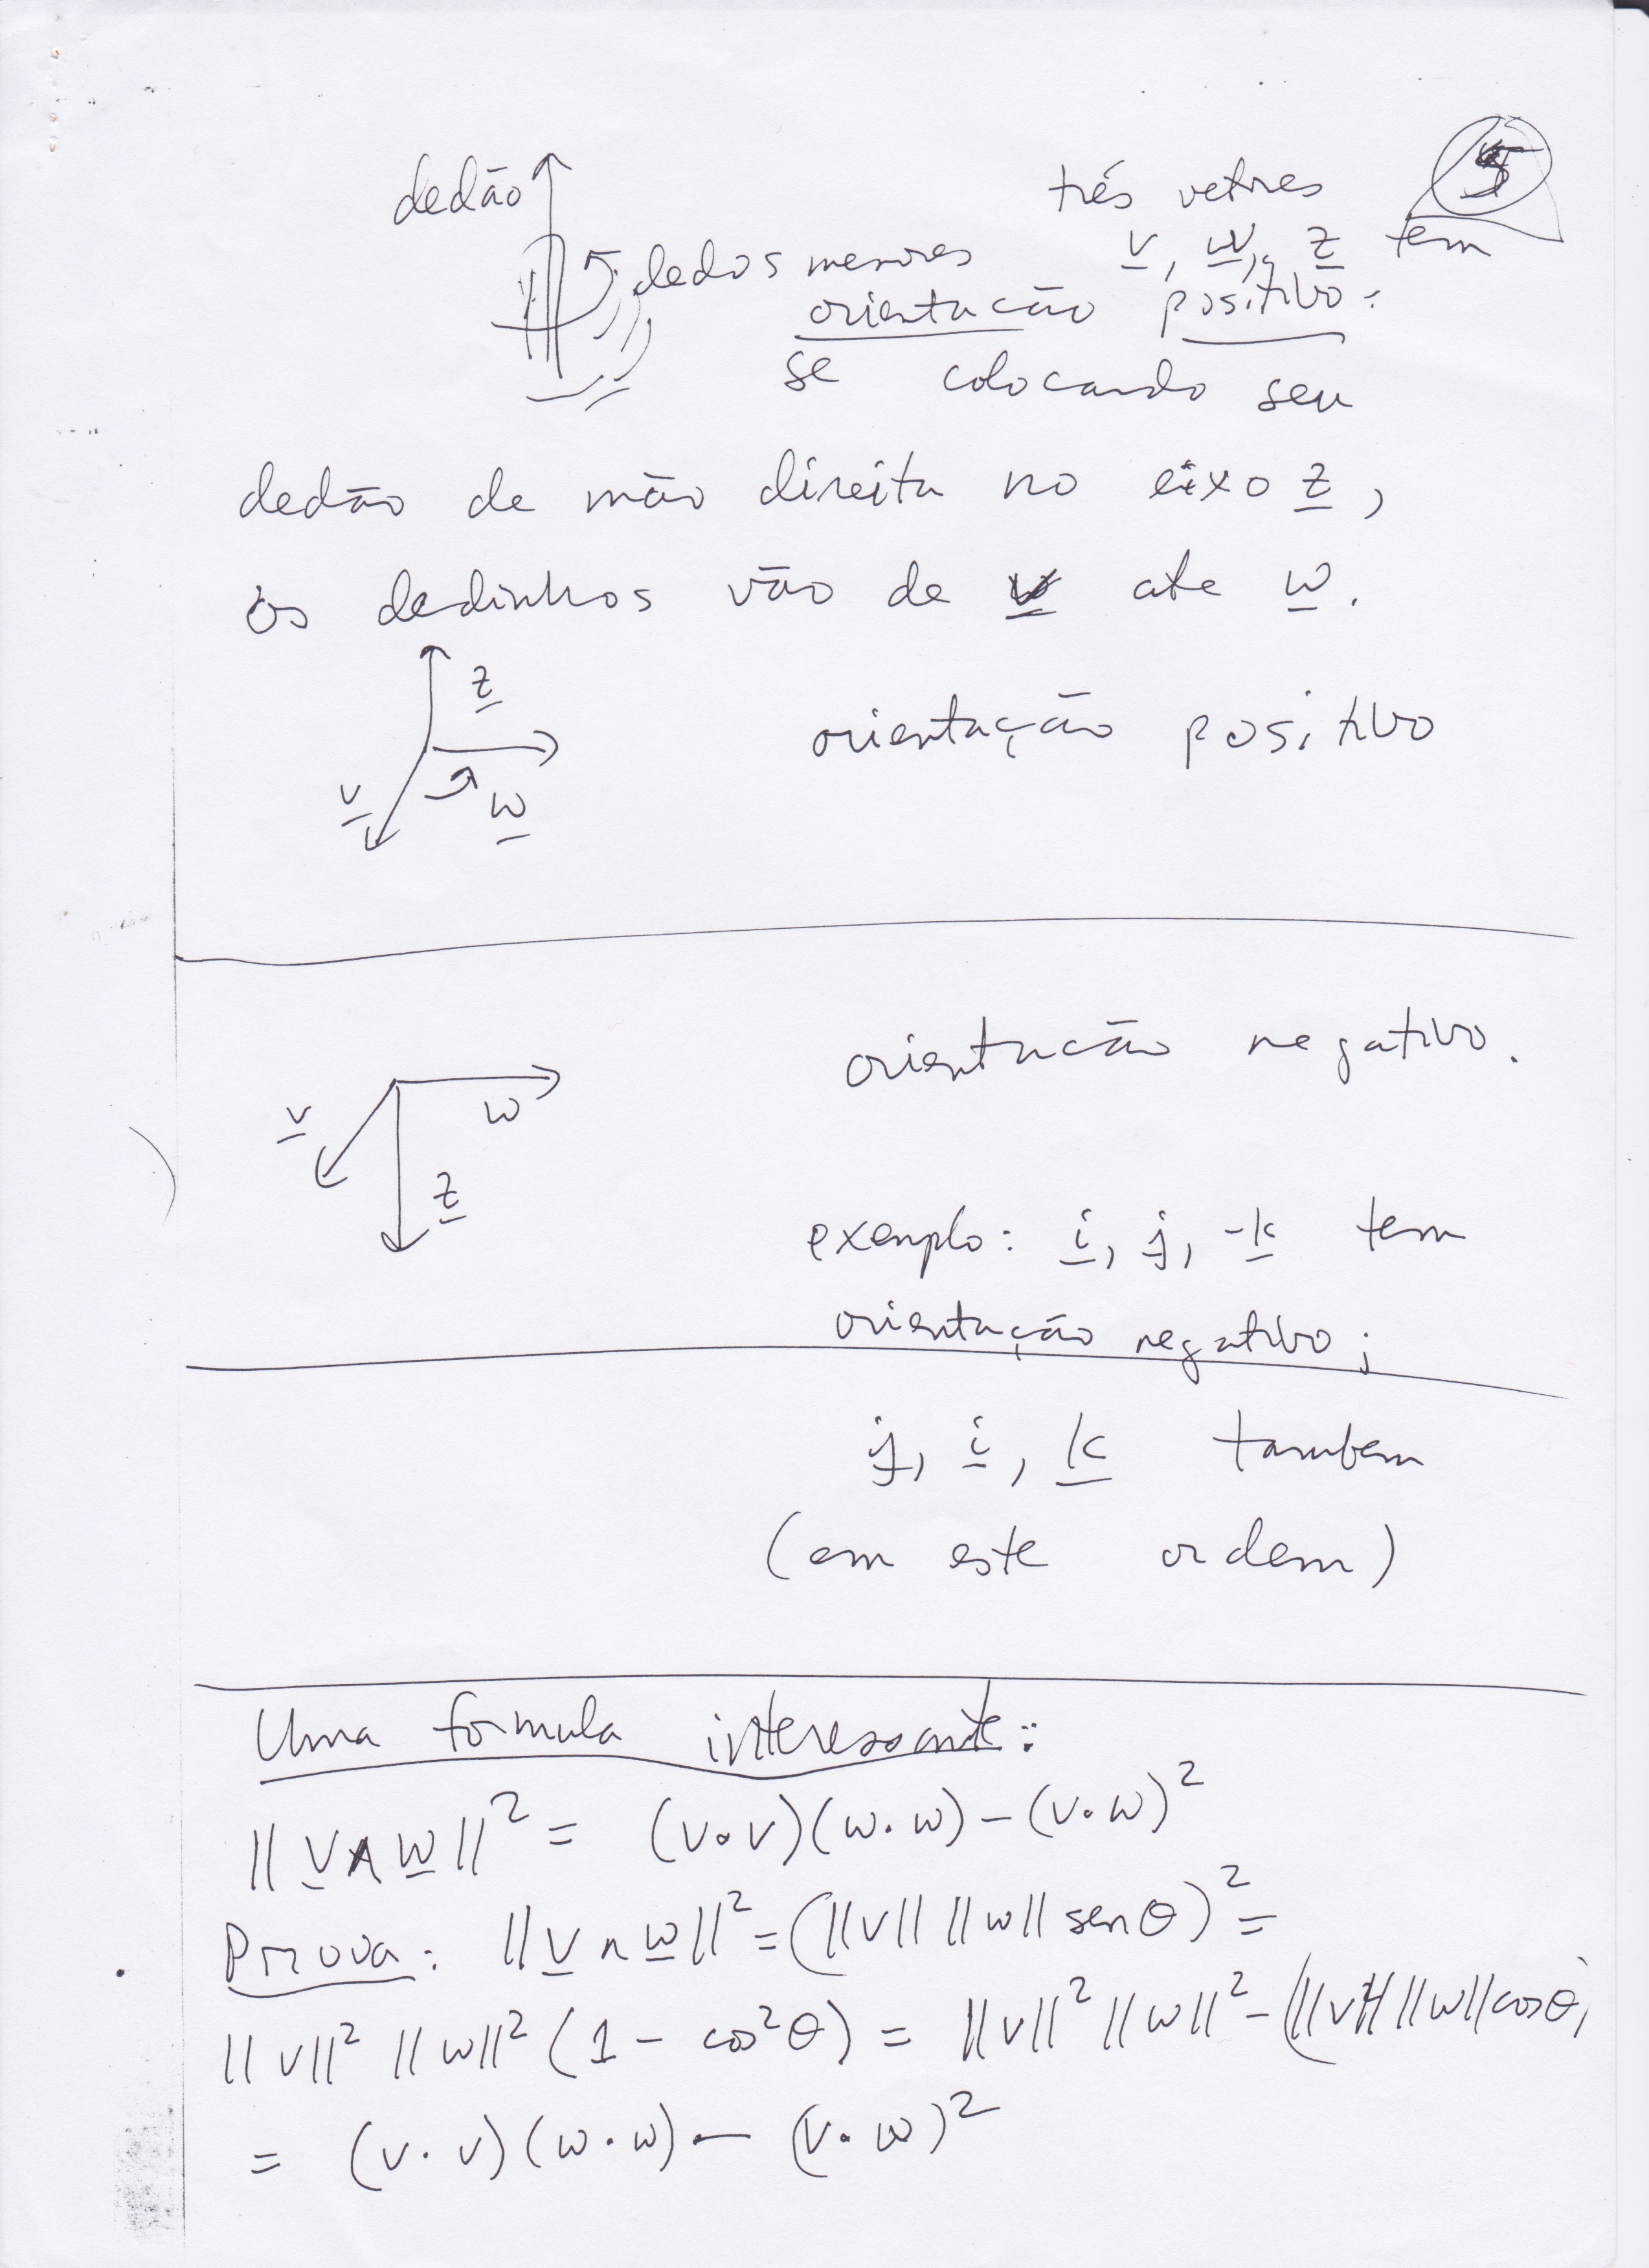 5
dedão
três vetores
dedos menores
v, w, z tem
orientação positivo:
se colocando seu
dedão de mão direita no eixo z,
os dedinhos vão de v ate w.
z
orientação positivo
v
w
orientacão negativo.
v
w
z
exemplo: i, j, -k tem
orientação negativo;
j, i, k tambem
(em este ordem)
Uma formula interessante:
||v ∧ w||² = (v·v)(w·w) – (v·w)²
Prova: ||v ∧ w||² = (||v|| ||w|| sen θ)² =
||v||² ||w||² (1 – cos²θ) = ||v||² ||w||² – (||v|| ||w|| cos θ)
= (v·v)(w·w) – (v·w)²